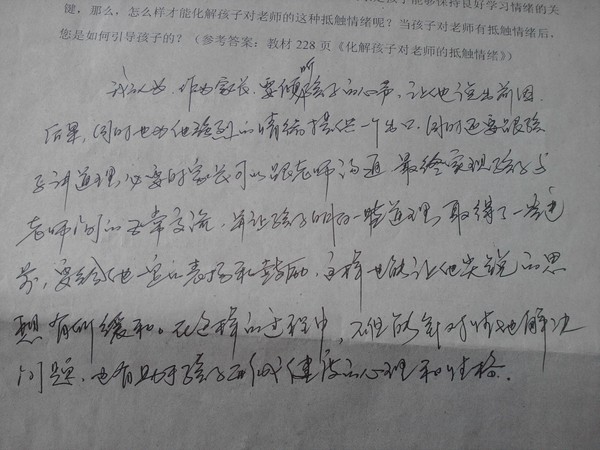 键，那么，怎么样才能化解孩子对老师的这种抵触情绪呢？当孩子对老师有抵触情绪后，
您是如何引导孩子的？（参考答案：教材 228 页《化解孩子对老师的抵触情绪》）
我认为，作为家长，要倾听孩子的心声，让他说出前因
后果，同时也为他强烈的情绪提供一个出口，同时还要跟孩
子讲道理，必要时家长可以跟老师沟通，最终实现孩子与
老师间的正常交流，并让孩子明白一些道理，取得了一些进
步，要给他一定的表扬和鼓励，这样也能让他尖锐的思
想有所缓和。在这样的过程中，不但能针对性地解决
问题，也有助于孩子形成健康的心理和性格。